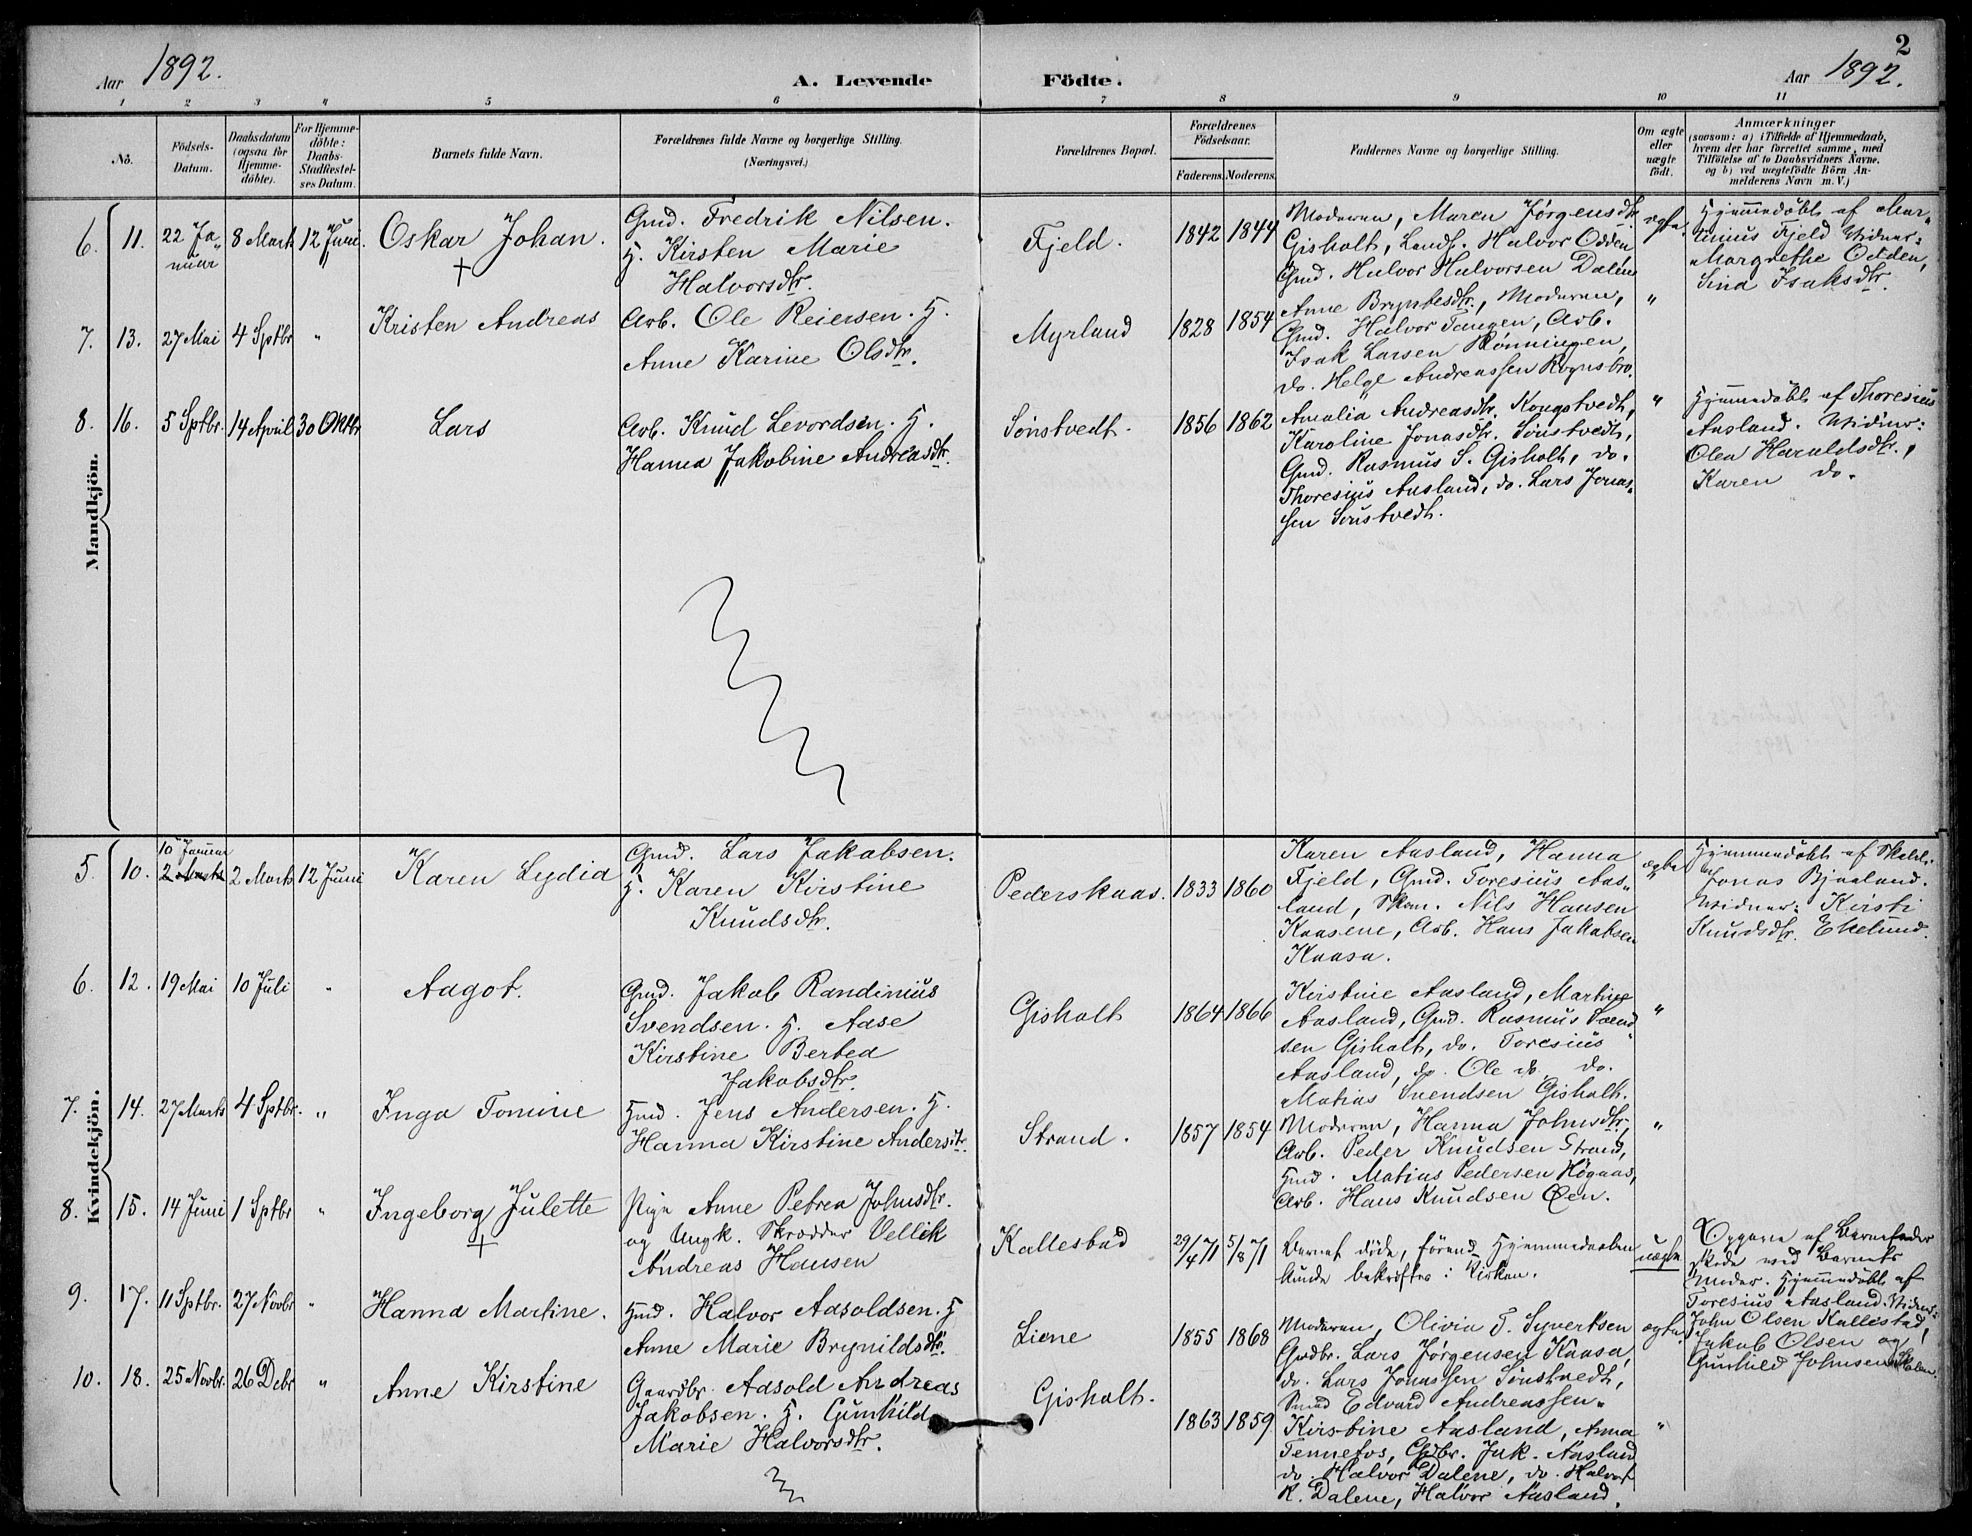 2
Aar 1892.
A. Levende Födte.
Aar 1892.
1 2 3 4 5 6 7 8 9 10 11
No.
Födsels-
Datum.
Daabsdatum
(ogsaa for
Hjemme-
döbte).
For Hjemme-
döbte:
Daabs-
Stadfæstel-
ses Datum.
Barnets fulde Navn.
Forældrenes fulde Navne og borgerlige Stilling.
(Næringsvei.)
Forældrenes Bopæl.
Forældrenes
Födselsaar.
Faderens. Moderens.
Faddernes Navne og borgerlige Stilling.
Om ægte
eller
uægte
födt.
Anmærkninger
(saasom: a) i Tilfælde af Hjemmedaab,
hvem der har forrettet samme, med
Tilföielse af to Daabsvidners Navne.
og b) ved uægtefödte Börn An-
melderens Navn m. V.)
Mandkjön.
6. 11. 22 Ja-
nuar
8 Marts 12 Juni.
Oskar Johan.
+
Gmd. Fredrik Nilsen.
H. Kirsten Marie
Halvorsdtr.
Fjeld.
1842 1844
Moderen, Maren Jørgensdtr.
Gisholt, Landh. Halvor Odden,
Gmd. Halvor Halvorsen Dalene
ægte.
Hjemmedøbt af Mar-
tinius Fjeld Vidner:
Margrethe Odden,
Sina Isaksdtr.
7. 13. 27 Mai 4 Sptbr "
Kristen Andreas
Arb. Ole Reiersen. H.
Anne Karine Olsdtr.
Myrland
1828 1854
Anne Bryntesdtr., Moderen,
Gmd. Halvor Tangen, Arb.
Isak Larsen Rønningen,
do. Helge Andreassen Rognsbro.
"
8. 16. 5 Sptbr. 14 April 30 Oktbr
Lars
Arb. Knud Levordsen. H.
Hanna Jakobine Andreasdtr.
Sønstvedt.
1856 1862
Amalia Andreasdtr. Kongstvedt,
Karoline Jonasdtr. Sønstvedt,
Gmd. Rasmus S. Gisholt, do.
Thoresius Aasland, do. Lars Jonas-
sen Sønstvedt.
"
Hjemmedøbt af Thoresius
Aasland. Vidner:
Olea Haraldsdtr.,
Karen do.
Kvindekjön.
5. 10. 10 Januar
2 Marts
2 Marts 12 Juni
Karen Lydia
Gmd. Lars Jakobsen.
H. Karen Kirstine
Knudsdtr.
Pederskaas.
1833 1860
Karen Aasland, Hanna
Fjeld, Gmd. Toresius Aas-
land, Skom. Nils Hansen
Kaasene, Arb. Hans Jakobsen
Kaasa.
ægte
Hjemmedøbt af
Jonas Bjaaland.
Vidner: Kirsti
Knudsdtr. Ekelund.
6. 12. 19 Mai 10 Juli "
Aagot.
Gmd. Jakob Randinius
Svendsen. H. Aase
Kirstine Bertea
Jakobsdtr.
Gisholt
1864 1866
Kirstine Aasland, Martine
Aasland, Gmd. Rasmus Svend-
sen Gisholt, do. Toresius
Aasland, do. Ole do. do.
Matias Svendsen Gisholt.
"
7. 14. 27 Marts 4 Sptbr. "
Inga Tomine
Hmd. Jens Andersen. H.
Hanna Kirstine Andersdtr.
Strand.
1857 1854
Moderen, Hanna Johnsdtr,
Arb. Peder Knudsen Strand,
Hmd. Matias Pedersen Høgaas,
Arb. Hans Knudsen Øen.
"
8. 15. 14 Juni 1 Sptbr "
Ingeborg Julette
+
Pige Anne Petrea Johnsdtr.
og Ungk. Skrædder Vellik
Andreas Hansen
Kallestad
29/4 71 5/8 71
Barnet døde, førend Hjemmedaaben
kunde bekræftes i Kirken.
uægte
Opgave af Barnefader
skede ved Barnets
Moder. Hjemmedøbt af
Toresius Aasland. Vidner:
John Olsen Kallestad,
Jakob Olsen og
Gunhild Johnsen
9. 17. 11 Sptbr. 27 Novbr "
Hanna Martine.
Hmd. Halvor Aasoldsen. H
Anne Marie Brynildsdtr.
Liene
1855 1868
Moderen, Olivia T. Syvertsen
Grdbr. Lars Jørgensen Kaasa,
do. Lars Jonassen Sønstvedt,
Edvard Andreassen.
ægte.
10. 18. 25 Novbr. 26 Debr "
Anne Kirstine
Gaardbr. Aasold Andreas
Jakobsen. H. Gunhild
Marie Halvorsdtr.
Gisholt.
1863 1859
Kirstine Aasland, Anna
Tennefos, Grdbr. Jak. Aasland
do. Halvor Dalene, do. Halvor
K. Dalene, Halvor Aasland.
"